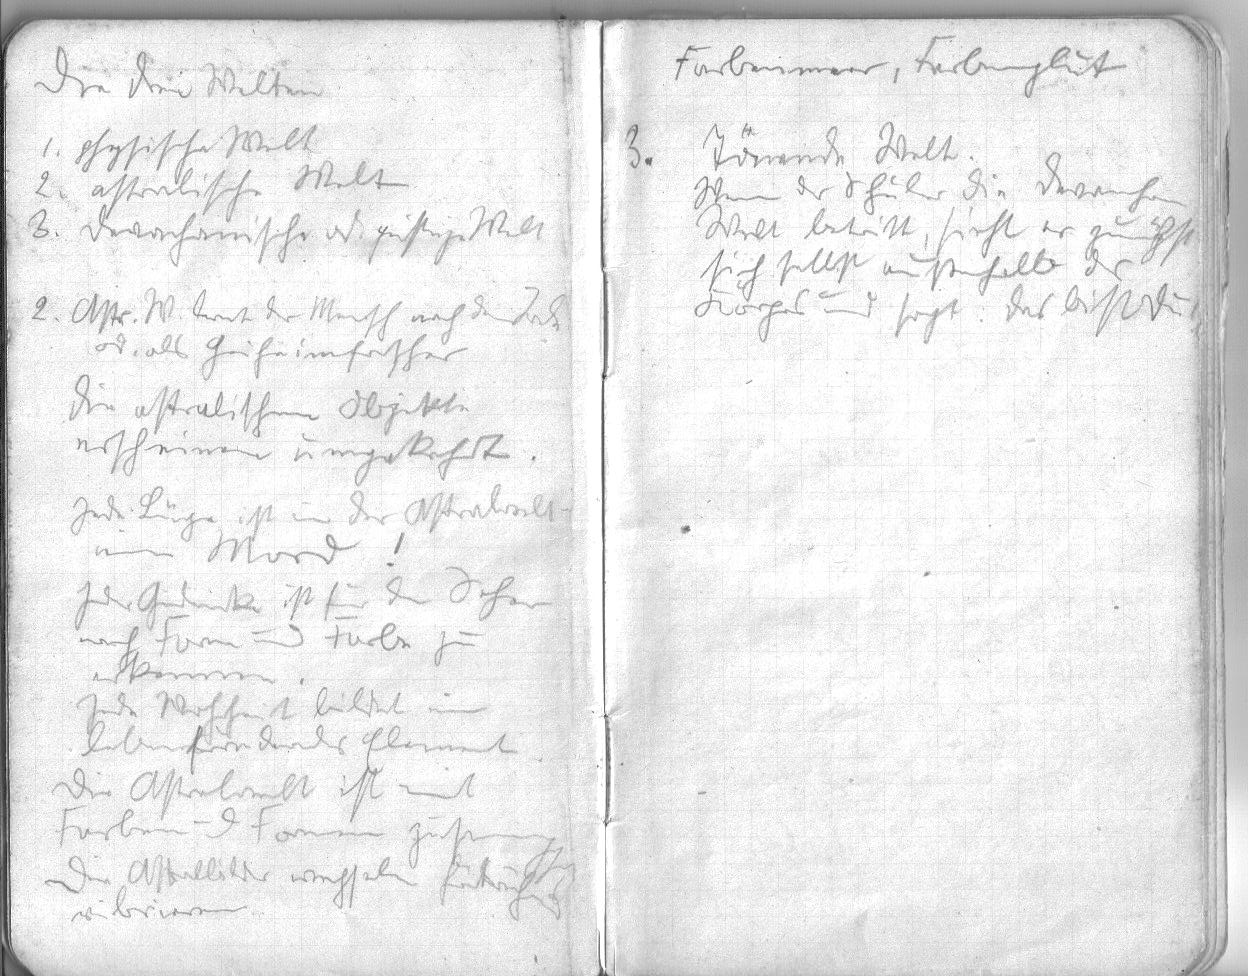 Die drei Welten
1. physische Welt
2. astralische Welt
3. devachanische od. geistige Welt
2. Astr. W. lernt der Mensch nach dem Tode
od. als Geheimforscher
Die astralischen Objekte
erscheinen umgekehrt.
Jede Lüge ist in der Astralwelt
ein Mord!
Jeder Gedanke ist für den Seher
nach Form und Farbe zu
erkennen.
Jede Wahrheit bildet ein
lebenförderndes Element
Die Astralwelt ist mit
Farben und Formen
Die Astralbilder wechseln
vibrieren
Farbenmeer, Farbenglut
3. Tönende Welt.
Wenn der Schüler die Devachan
Welt betritt, sieht er zunächst
sich selbst außerhalb des
Körpers und sagt: das bist Du!